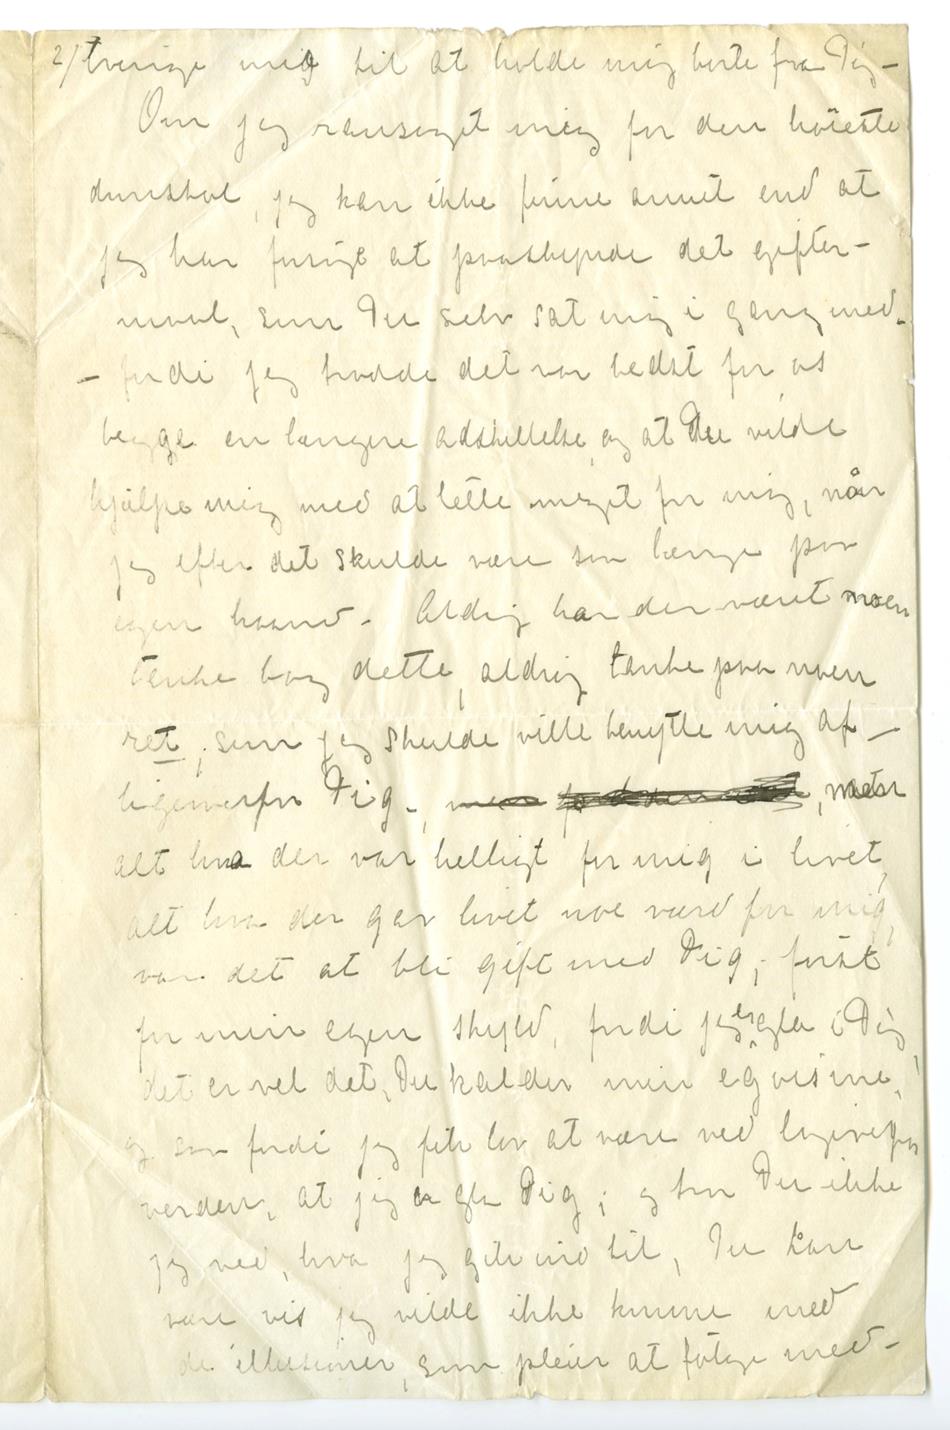 2/ tvinge mig til at holde mig borte fra Dig –
Om jeg ransaget mig for den høieste
domstol, jeg kan ikke finne annet end at
jeg har forsøgt at paaskynde det gifter–
maal, som Du selv sat mig i gang med –
– fordi jeg trodde det var bedst for os
begge en længere adskillelse, og at Du vilde
hjælpe mig med at lette meget for mig, når
jeg efter det skulde være saa længe paa
egen haand – Aldrig har der været noen
tanke bag dette, aldrig tanke paa noen
ret, som jeg skulde ville benytte mig af –
ligeoverfor Dig –, men
alt hva der var helligt for mig i livet,
alt hva der gav livet noe værd for mig,
var det at bli gift med Dig; først
for min egen skyld, fordi jeg er gla i Dig,
det er vel det, Du kalder min egoisme,
og saa fordi jeg fik lov at være ved
verden, at jeg er gla Dig; og tro Du ikke
jeg ved, hva jeg gik ind til, Du kan
være vis jeg vilde ikke komme med
de illusioner, som pleier at følge med –